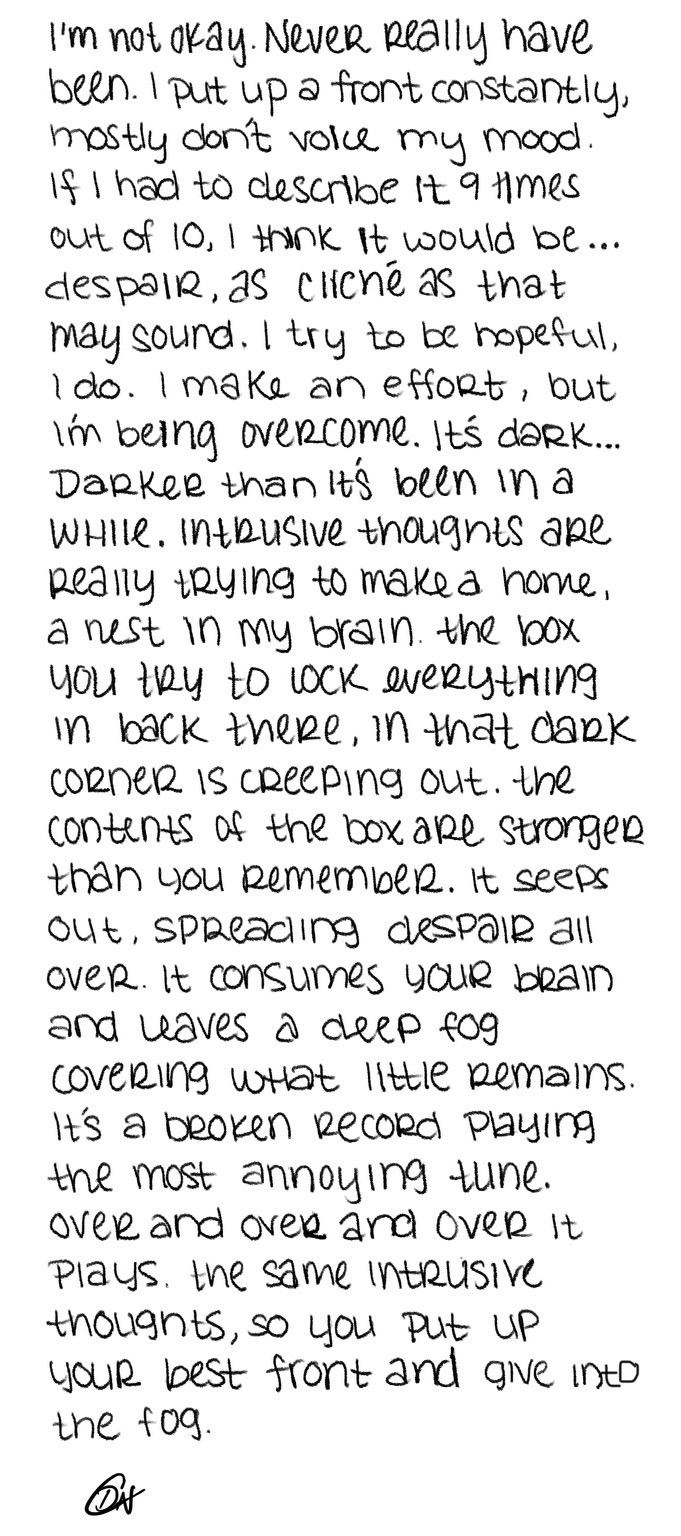 I'm not okay. Never really have
been. I put up a front constantly,
mostly don't voice my mood.
If I had to describe it 9 times
out of 10, I think it would be...
despair, as cliché as that
may sound. I try to be hopeful,
I do. I make an effort, but
I'm being overcome. It's dark...
Darker than it's been in a
while. Intrusive thoughts are
really trying to make a home,
a nest in my brain. the box
you try to lock everything
in back there, in that dark
corner is creeping out. the
contents of the box are stronger
than you remember. It seeps
out, spreading despair all
over. It consumes your brain
and leaves a deep fog
covering what little remains.
It's a broken record playing
the most annoying tune.
over and over and over it
plays. the same intrusive
thoughts, so you put up
your best front and give into
the fog.